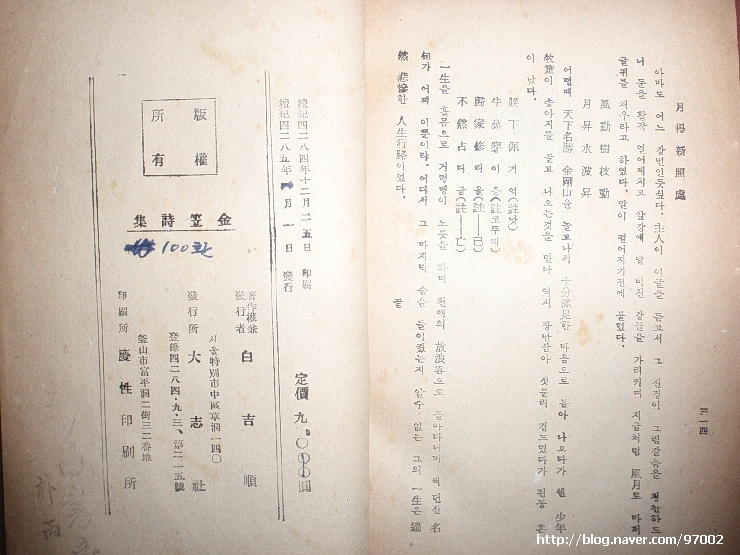 月得新照處
아마도 어느 강변인듯싶다. 主人이 이글을 듣고서 그 신경이 그럴같음을
너 문을 활작 열어제치고 앞강에 달 비친 강물을 가리키며 지금처럼 風月로 마저
글귀를 채우라고 하였다. 말이 떨어지기전에 불렀다.
風動樹枝動
月昇水波昇
어떤때 天下名勝 金剛山을 놀고나서 十分滿足한 마음으로 돌아 나오다가 웬 少年
牧童이 송아지를 끌고 나오는것을 만나 역시 장난삼아 섯불리 건드렸다가 된통 혼
이 났다.
腰下佩기역(註낫)
牛鼻穿이응(註코뚜레)
歸家修리을(註—己)
不然占디귿(註—亡)
一生을 흥몸으로 거렁뱅이 노릇을 하며 천애의 放浪客으로 돌아다니며 써 던진 名
句가 어찌 이뿐이랴. 어디서 그 마지막 숨을 들이켰는지 알수 없는 그의 一生은 鑑
然 悲慘한 人生行路이었다.
끝
三一四
檀紀四二八四年十二月二五日 印刷
檀紀四二八五年 月一日 發行
定價 九
版權
所有
金笠詩集
100
著作權兼
發行者 白吉順
서울特別市中區草洞一四〇
發行所 大志社
登錄四二八四·九·三、第二一五號
釜山市富平洞二街三二番地
印刷所 慶性印刷所
http://blog.naver.com/97002